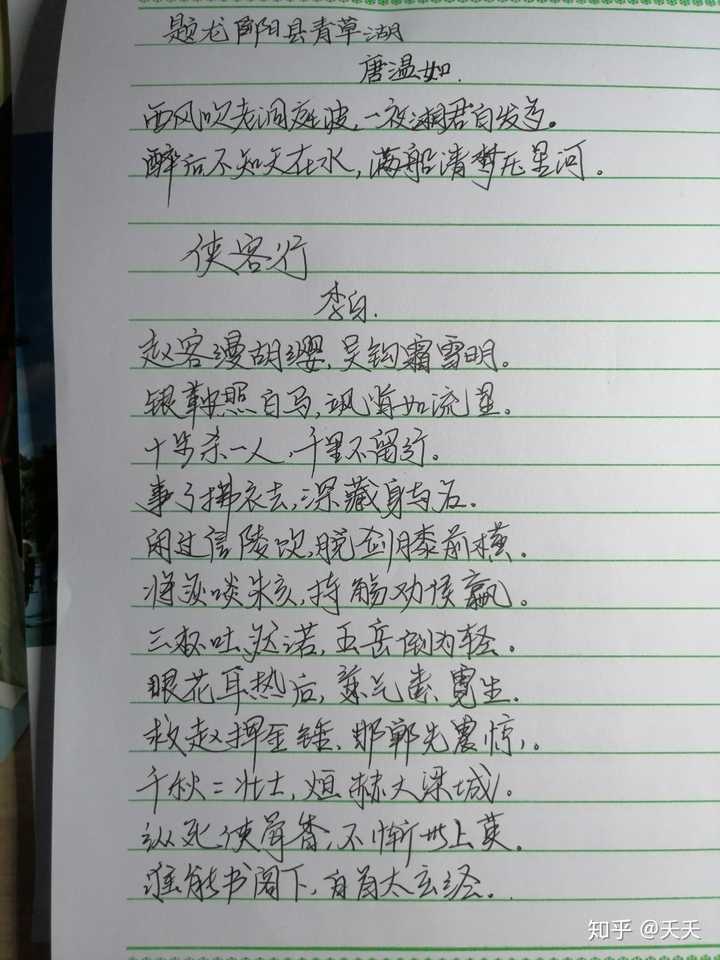 题龙阳县青草湖
唐温如.
西风吹老洞庭波，一夜湘君白发多。
醉后不知天在水，满船清梦压星河。
侠客行
李白.
赵客缦胡缨，吴钩霜雪明。
银鞍照白马，飒沓如流星。
十步杀一人，千里不留行。
事了拂衣去，深藏身与名.
闲过信陵饮，脱剑膝前横.
将炙啖朱亥，持觞劝侯嬴。
三杯吐然诺，五岳倒为轻。
眼花耳热后，意气素霓生.
救赵挥金锤，邯郸先震惊。
千秋二壮士，烜赫大梁城。
纵死侠骨香，不惭世上英。
谁能书阁下，白首太玄经.
知乎 @天天